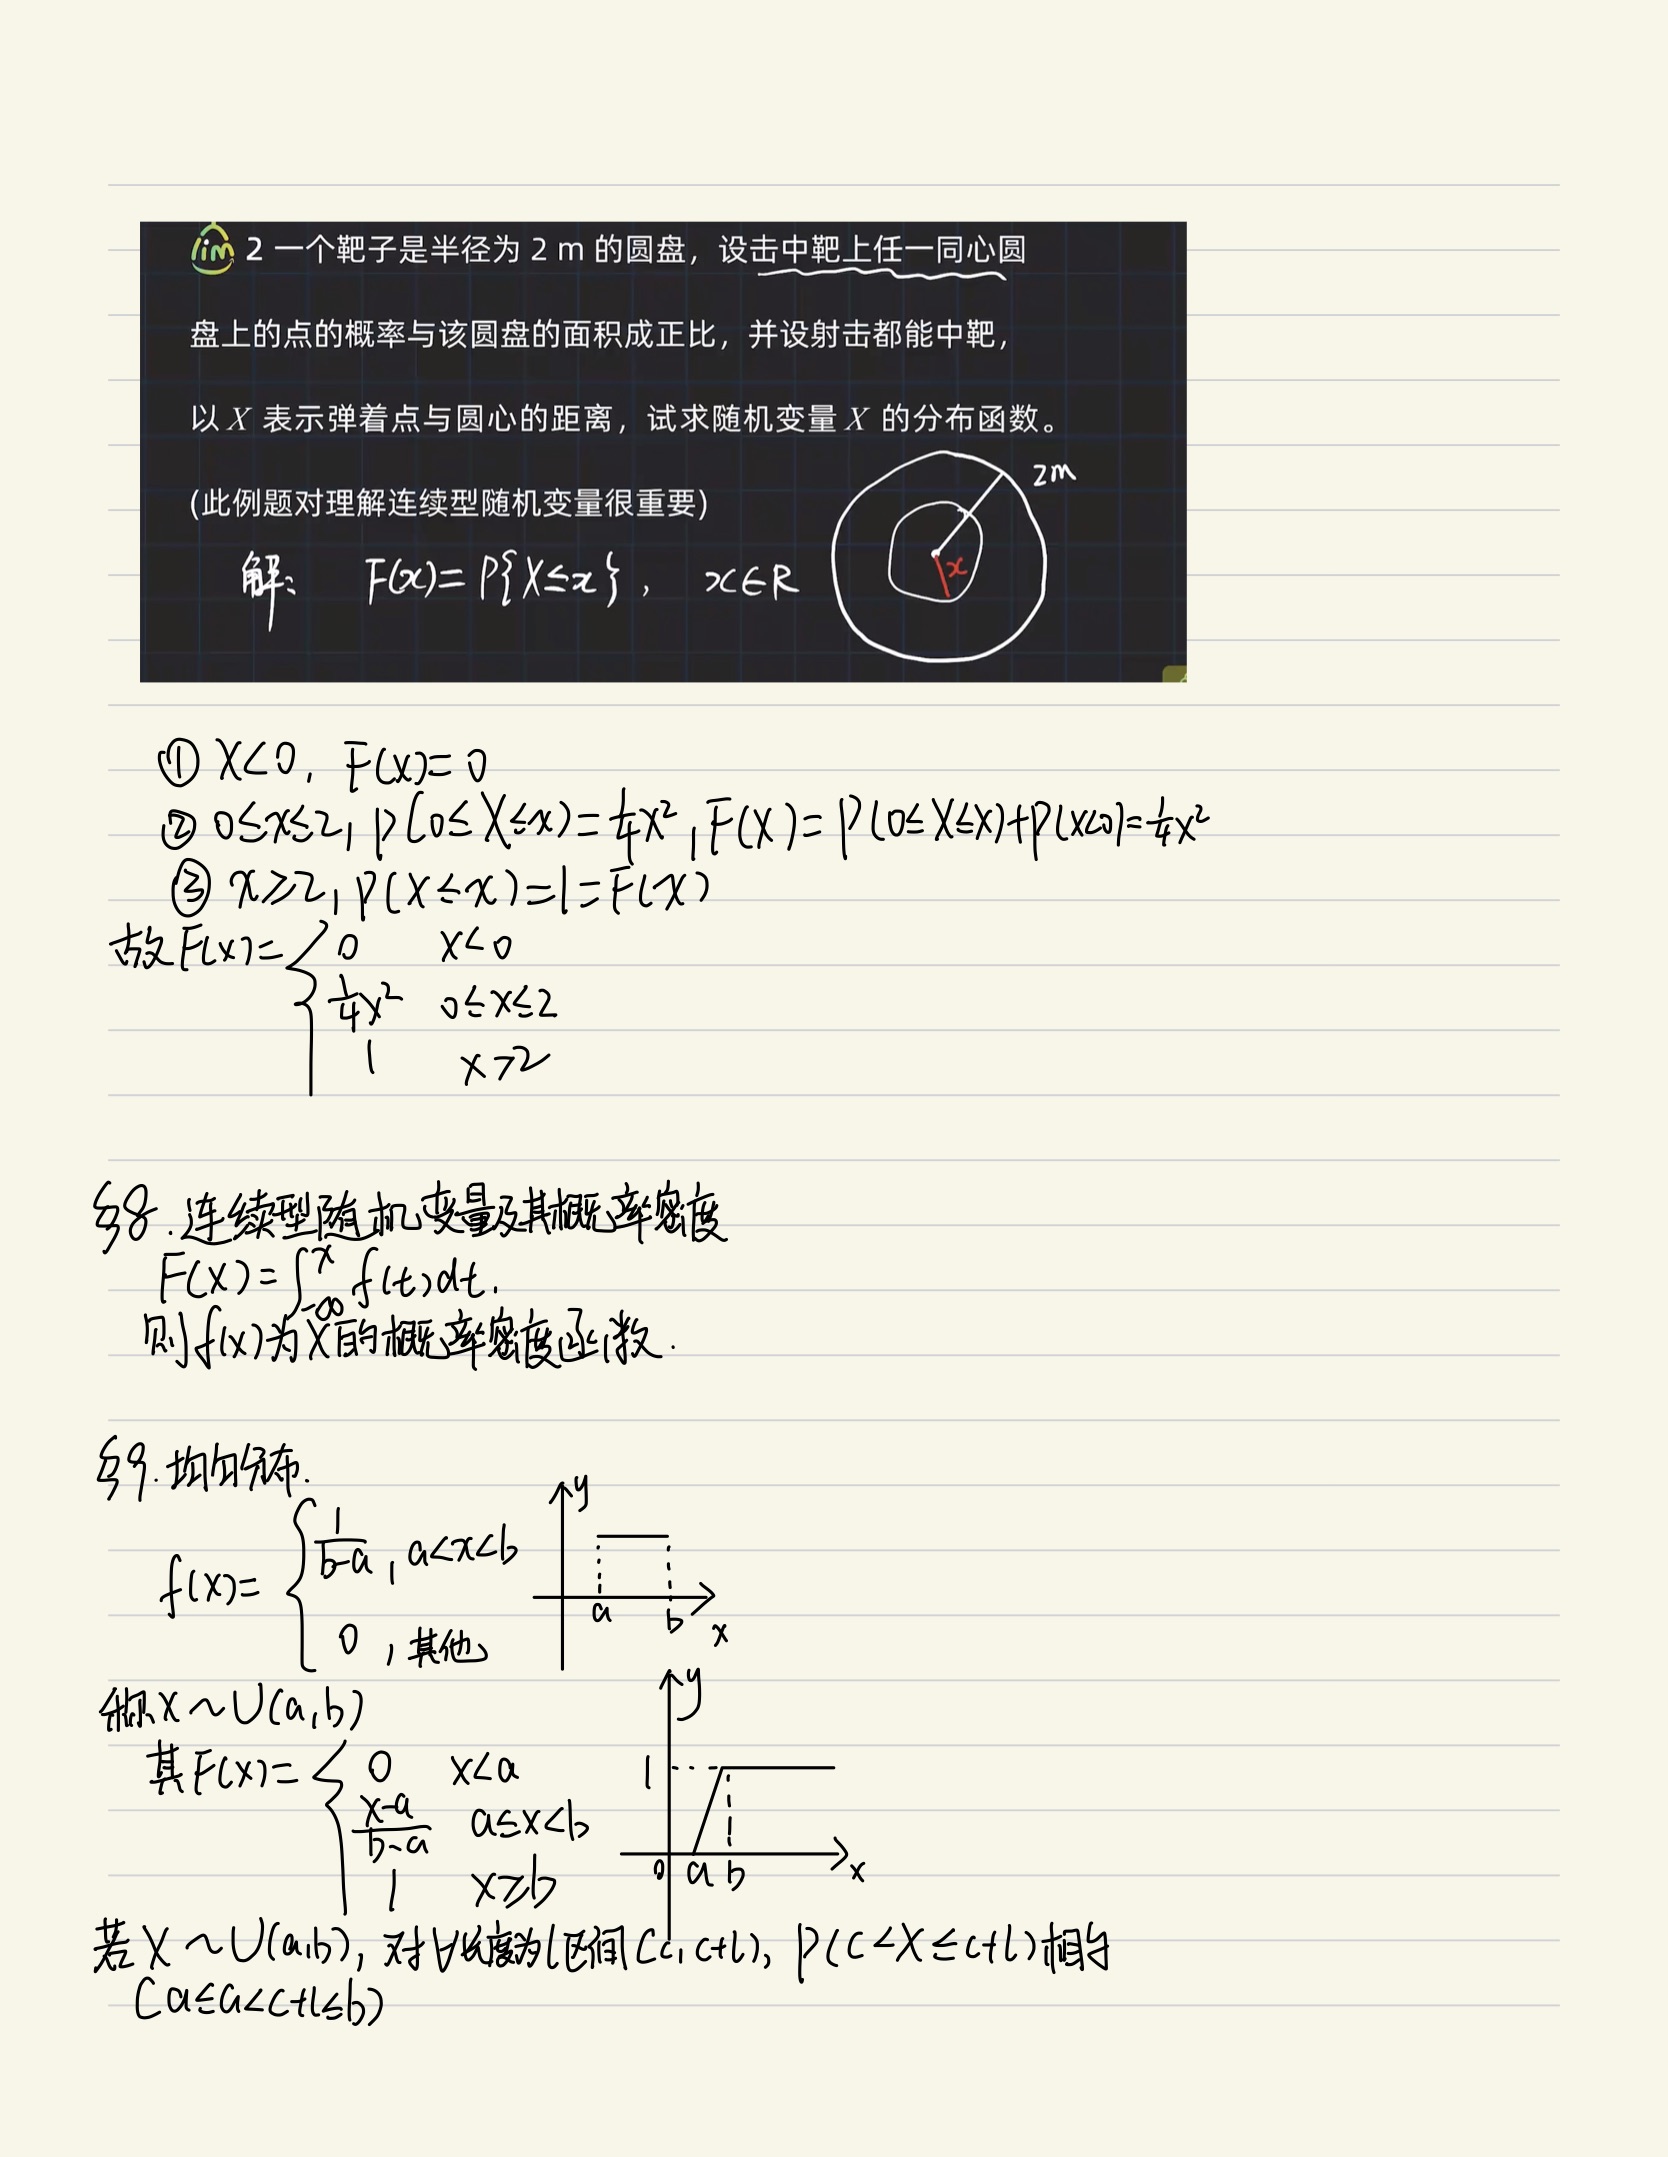 lim 2 一个靶子是半径为 2 m 的圆盘，设击中靶上任一同心圆
盘上的点的概率与该圆盘的面积成正比，并设射击都能中靶，
以 X 表示弹着点与圆心的距离，试求随机变量 X 的分布函数。
(此例题对理解连续型随机变量很重要)
2m
x
解： F(x)=P{X≤x}， x∈R
① X<0，F(x)=0
② 0≤x≤2，P(0≤X≤x)=1/4 x²，F(x)=P(0≤X≤x)+P(X<0)=1/4 x²
③ x≥2，P(X≤x)=1=F(x)
故F(x)= { 0 x<0
1/4 x² 0≤x≤2
1 x>2
§8.连续型随机变量及其概率密度
F(x)=∫_{-∞}^{x} f(t)dt.
则f(x)为X的概率密度函数.
§9.均匀分布.
f(x)= { 1/(b-a)，a<x<b
0，其他
y
a b x
称X~U(a,b)
其F(x)= { 0 x<a
(x-a)/(b-a) a≤x<b
1 x≥b
y
1
0 a b x
若X~U(a,b)，对∀长度为l区间(c,c+l)，P(c<X≤c+l)相等
(a≤a<c+l≤b)